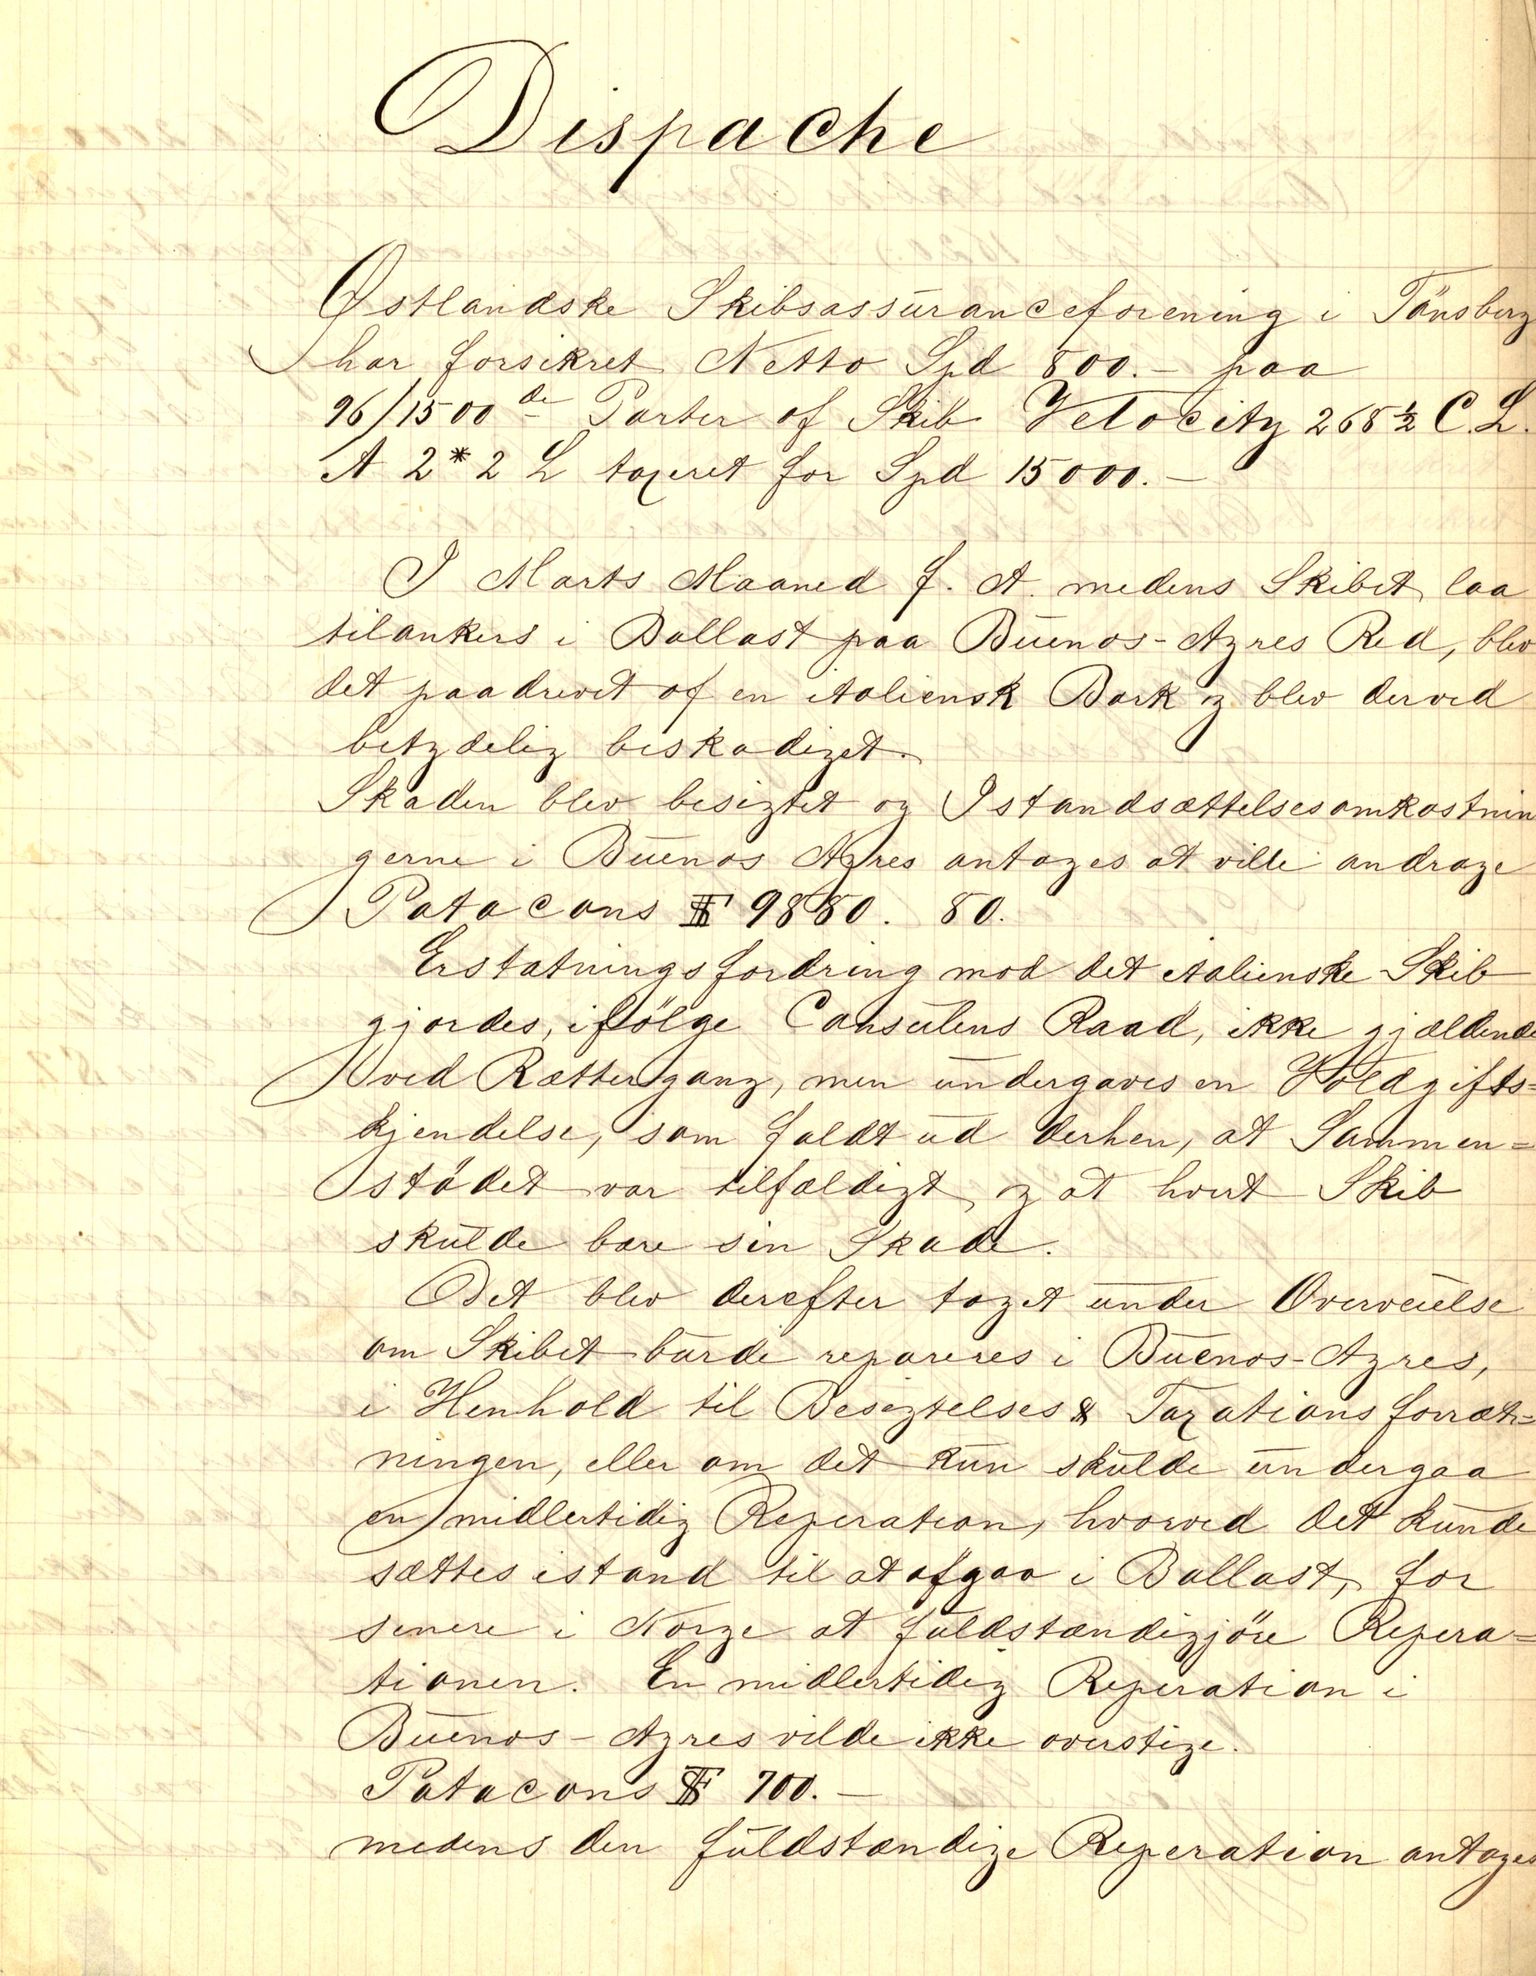 Dispache
Østlandske Skibsassuranceforening i Tönsberg
har forsikret Netto Spd 800.- paa
96/1500 de Parter af Skib Velocity 268½ C.L.
A 2*2 L taxeret for Spd 15000.-
I Marts Maaned f. A. medens Skibet laa
tilankers i Ballast paa Buenos-Ayres Red, blev
det paadrevet af en italiensk Bark og blev derved
betydelig beskadiget.
Skaden blev besigtet og Istandsættelsesomkostnin
gerne i Buenos Ayres antages at ville andrage
Patacons $ 9880. 80.
Erstatningsfordring mod det italienske Skib
gjordes, ifølge Consulens Raad, ikke gjældende
ved Rættergang, men undergaves en Voldgifts=
kjendelse, som faldt ud derhen, at Sammen=
stødet var tilfældigt og at hvert Skib
skulde bære sin Skade.
Det blev derefter taget under Overveielse
om Skibet burde repareres i Buenos-Ayres,
i Henhold til Besigtelses & Taxations forræt=
ningen, eller om det kun skulde undergaa
en midlertidig Reperation, hvorved det kunde
sættes istand til at afgaa i Ballast, for
senere i Norge at fuldstændiggjöre Repera=
tionen. En midlertidig Reperation i
Buenos-Ayres vilde ikke overstige.
Patacons $ 700.-
medens den fuldstændige Reperation antages